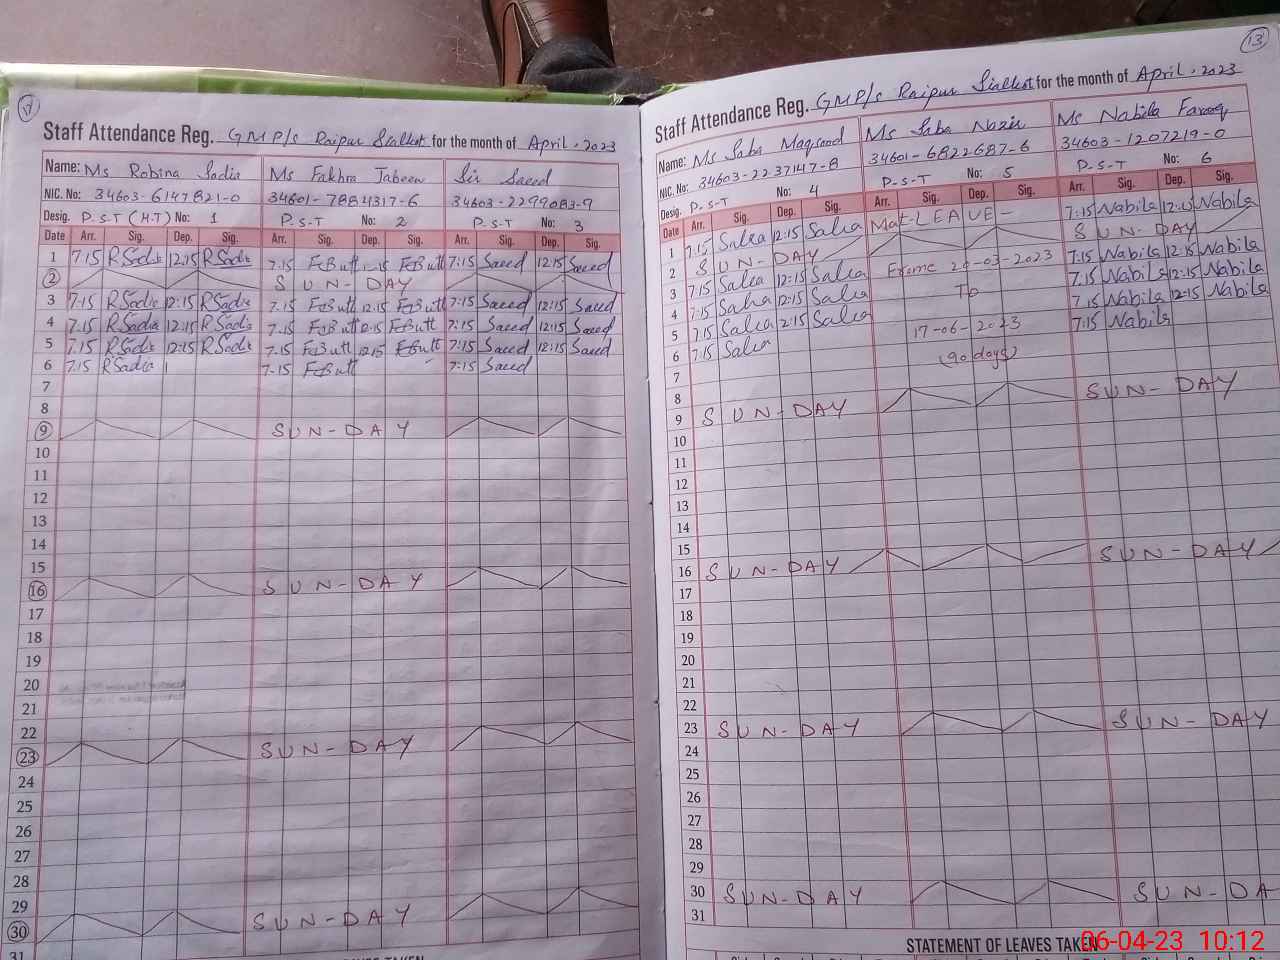 Staff Attendance Reg. GMP/s Raipur Sialkot for the month of April, 2023
Name: Ms Robina Sadia Ms Fakhra Jabeen Sir Saeed
NIC. No: 34603-6147821-0 34601-7884317-6 34603-2299083-9
Desig. P.S.T (H.T) No: 1 P.S.T No: 2 P.S.T No: 3
Date Arr. Sig. Dep. Sig. Arr. Sig. Dep. Sig. Arr. Sig. Dep. Sig.
1 7:15 RSadia 12:15 RSadia 7:15 FcButt 12:15 FcButt 7:15 Saeed 12:15 Saeed
2 SUN-DAY
3 7:15 RSadia 12:15 RSadia 7:15 FcButt 12:15 FcButt 7:15 Saeed 12:15 Saeed
4 7:15 RSadia 12:15 RSadia 7:15 FcButt 12:15 FcButt 7:15 Saeed 12:15 Saeed
5 7:15 RSadia 12:15 RSadia 7:15 FcButt 12:15 FcButt 7:15 Saeed 12:15 Saeed
6 7:15 RSadia 7:15 FcButt 7:15 Saeed
7
8
9 SUN-DAY
10
11
12
13
14
15
16 SUN-DAY
17
18
19
20
21
22
23 SUN-DAY
24
25
26
27
28
29
30 SUN-DAY
31
13
Staff Attendance Reg. GMP/s Raipur Sialkot for the month of April, 2023
Name: Ms Saba Maqsood Ms Saba Nazir Ms Nabila Farooq
NIC. No: 34603-2237147-8 34601-6822687-6 34603-1207219-0
Desig. P.S-T No: 4 P.S-T No: 5 P.S-T No: 6
Date Arr. Sig. Dep. Sig. Arr. Sig. Dep. Sig. Arr. Sig. Dep. Sig.
1 7:15 Salea 12:15 Salea Mat-LEAVE- 7:15 Nabila 12:15 Nabila
2 SUN-DAY SUN-DAY
3 7:15 Salea 12:15 Salea Frome 20-03-2023 7:15 Nabila 12:15 Nabila
4 7:15 Salea 12:15 Salea To 7:15 Nabila 12:15 Nabila
5 7:15 Salea 12:15 Salea 7:15 Nabila 12:15 Nabila
6 7:15 Salea 17-06-2023 7:15 Nabila
7 (90 days)
8
9 SUN-DAY SUN-DAY
10
11
12
13
14
15
16 SUN-DAY SUN-DAY
17
18
19
20
21
22
23 SUN-DAY SUN-DAY
24
25
26
27
28
29
30 SUN-DAY SUN-DA
31
STATEMENT OF LEAVES TAKEN
06-04-23 10:12